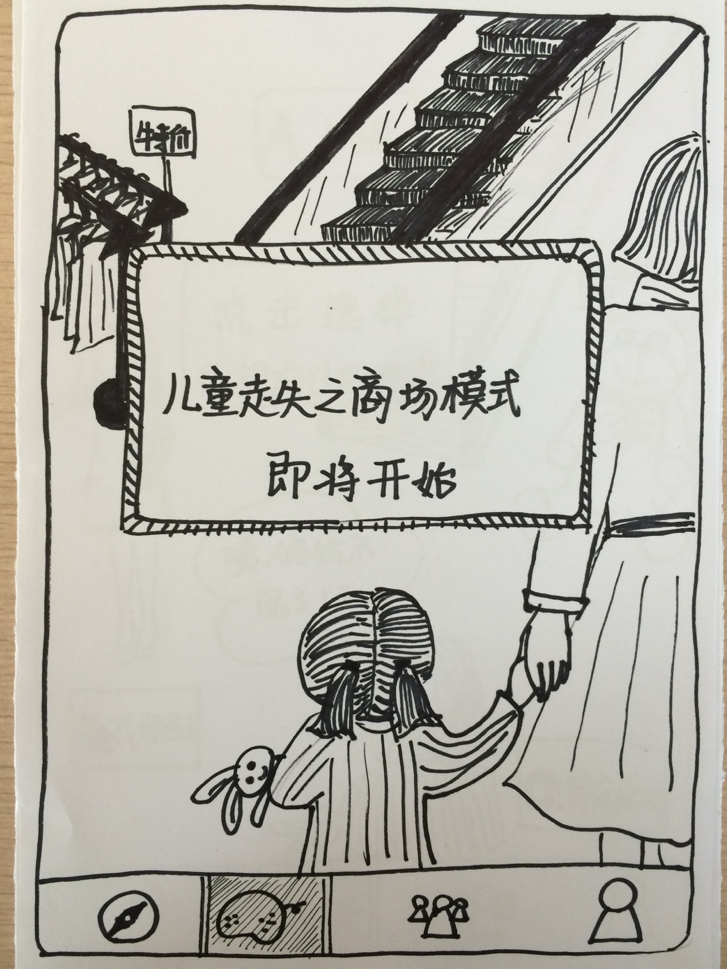 特价
儿童走失之商场模式
即将开始